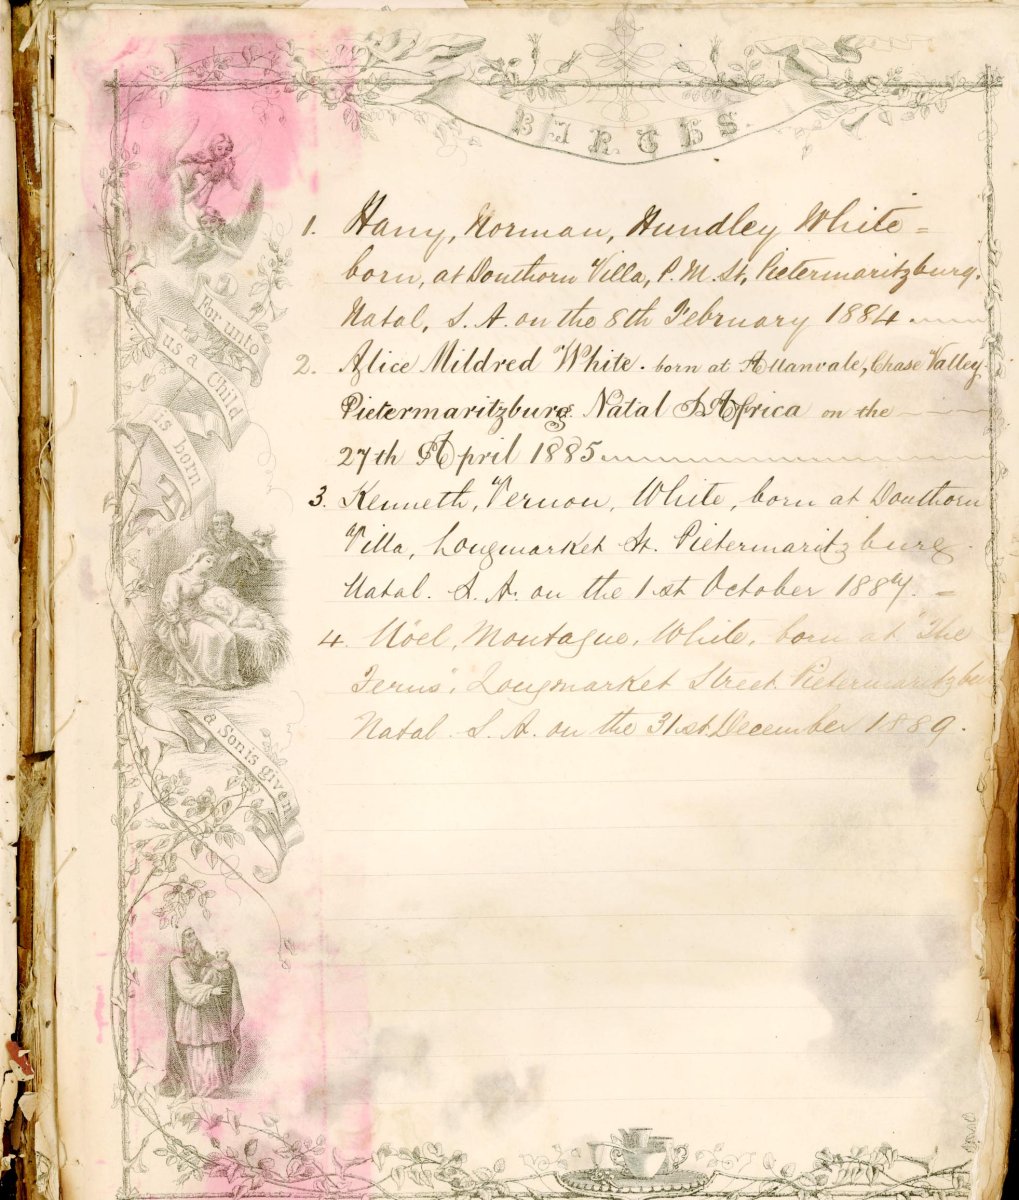 BIRTHS.
For unto
us a Child
is born
a Son is given
1. Harry, Norman, Hundley White =
born, at Douthorn Villa, P. M. St, Pietermaritzburg.
Natal, S. A. on the 8th February 1884.
2. Alice Mildred White. born at Allanvale, Chase Valley.
Pietermaritzburg. Natal S. Africa on the
27th April 1885
3. Kenneth, Vernon, White, born at Douthorn
Villa, Longmarket St. Pietermaritzburg.
Natal. S. A. on the 1st October 1887. =
4. Nöel, Montague, White, born at "The
Ferns", Longmarket Street Pietermaritzburg
Natal. S. A. on the 31st December 1889.